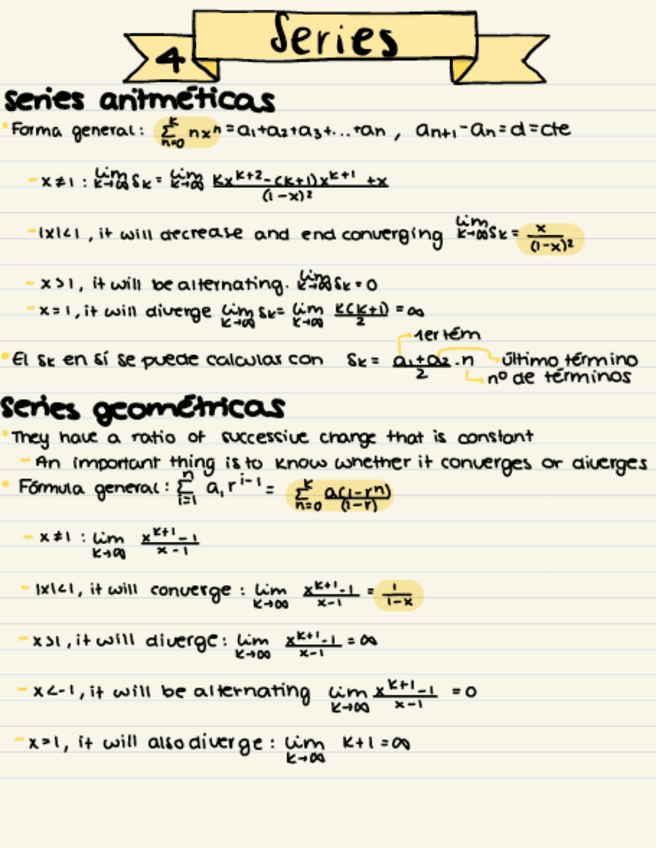 Series
4
series aritméticas
Forma general: ∑_{n=0}^{k} nxⁿ = a₁+a₂+a₃+...+an , an+1 - an = d = cte
- x≠1 : lim_{k→∞} Sk = lim_{k→∞} (kx^{k+2} - (k+1)x^{k+1} + x)/(1-x)²
- |x|<1, it will decrease and end converging lim_{k→∞} Sk = x/(1-x)²
- x>1, it will be alternating. lim_{k→∞} Sk = 0
- x=1, it will diverge lim_{k→∞} Sk = lim_{k→∞} k(k+1)/2 = ∞
1er térm
El Sk en sí se puede calcular con Sk = (a₁+a₂)/2 · n último término
nº de términos
series geométricas
They have a ratio of successive change that is constant
- An important thing is to know whether it converges or diverges
Fórmula general: ∑_{i=1}^{n} a₁r^{i-1} = ∑_{n=0}^{k} a(1-rⁿ)/(1-r)
- x≠1 : lim_{k→∞} (x^{k+1}-1)/(x-1)
- |x|<1, it will converge : lim_{k→∞} (x^{k+1}-1)/(x-1) = 1/(1-x)
- x>1, it will diverge : lim_{k→∞} (x^{k+1}-1)/(x-1) = ∞
- x<-1, it will be alternating lim_{k→∞} (x^{k+1}-1)/(x-1) = 0
- x=1, it will also diverge : lim_{k→∞} k+1 = ∞